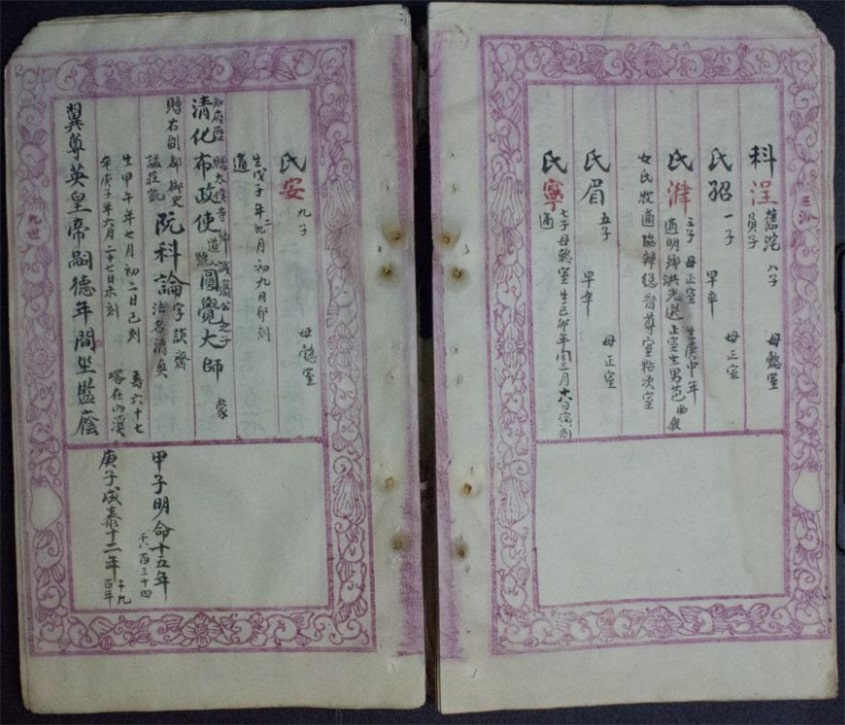 科
八子
母懿室
員子
氏
一子
早卒
母正室
氏
三子 母正室 生庚申年
適明鄉洪光選正室生男芭
女氏牧適協辦總督尊室粘次室
氏眉
五子
早卒
母正室
氏寧
七子母懿室生己卯年閏三月十六日寅刻
適
氏安
九子
母懿室
生戊子年二月初九日卯刻
適
公之子
清化布政使
道號
圓覺大師
蒙
贈右副都御史
阮科論
字談齋
諡莊凱
法名清奧
生甲午年七月初二日巳刻
壽六十七
卒庚子年六月二十七日未刻
翼尊英皇帝嗣德年間坐監廕
甲子明命十五年
千八百三十四
庚子成泰十二年
千九百年
九世